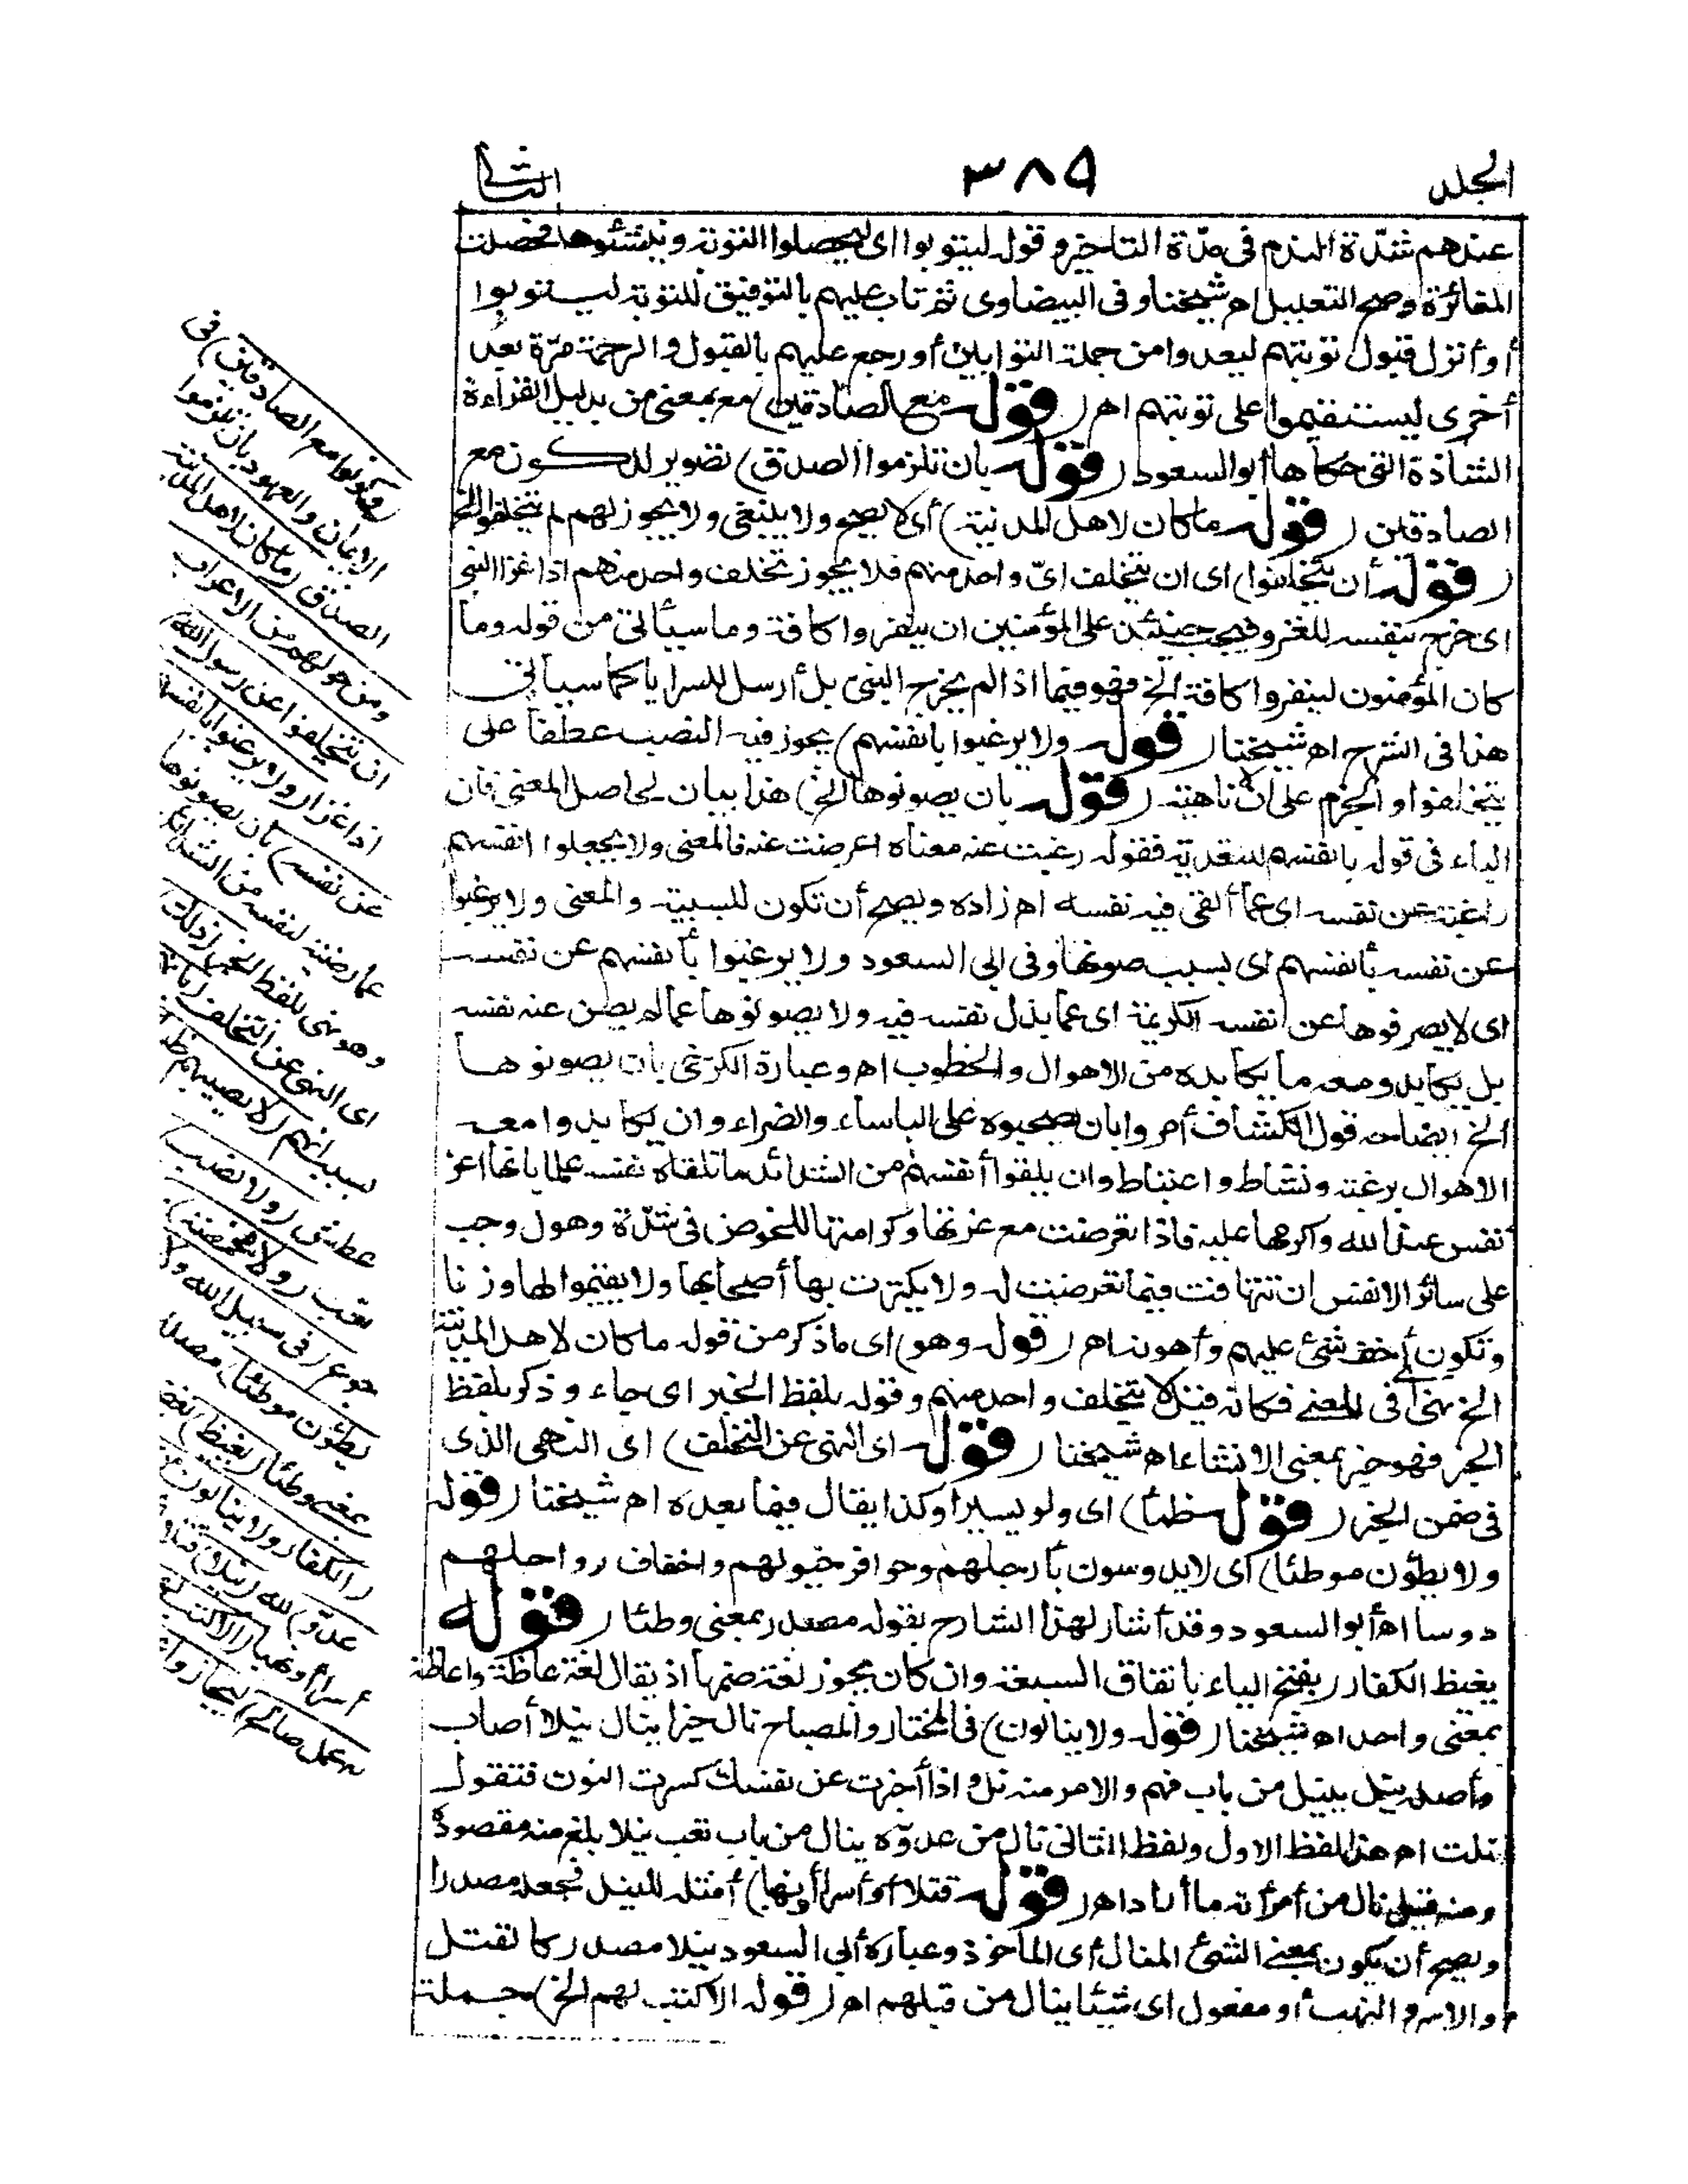 الجلد ٣٨٩ الثانى
عندهم شدّة الندم فى مدّة التاخير وقوله ليتوبوا اى ليحصلوا التوبة وينشئوها فحصلت
المغائرة وصح التعليل اه شيخنا وفى البيضاوى ثم تاب عليهم بالتوفيق للتوبة ليتوبوا
أو أنزل قبول توبتهم ليعدوا من جملة التوابين أو رجع عليهم بالقبول والرحمة مرّة بعد
أخرى ليستقيموا على توبتهم اه (قوله مع الصادقين) مع بمعنى من بدليل القراءة
الشاذة التى حكاها أبو السعود (قوله بان تلزموا الصدق) تصوير للكون مع
الصادقين (قوله ماكان لاهل المدنية) أى لا يصح ولا ينبغى ولا يجوز لهم ان يتخلفوا الخ
(قوله أن يتخلفوا) اى ان يتخلف اىّ واحد منهم فلا يجوز تخلف واحد منهم اذا غزا النبى
اى خرج بنفسه للغزو فيجب حينئذ على المؤمنين ان ينفروا كافة وما سيأتى من قوله وما
كان المؤمنون لينفروا كافة الخ فهو فيما اذا لم يخرج النبى بل أرسل للسرايا كما سيأتى
هذا فى الشرح اه شيخنا (قوله ولا يرغبوا بانفسهم) يجوز فيه النصب عطفا على
يتخلفوا والجزم على ان لا ناهية (قوله بان يصونوها الخ) هذا بيان لحاصل المعنى فان
الباء فى قوله بانفسهم للتعدية فقوله رغبت عنه معناه اعرضت عنه فالمعنى ولا يجعلوا انفسهم
راغبة عن نفسه اى عما ألقى فيه نفسه اه زاده ويصح أن تكون للسببية والمعنى ولا يرغبوا
عن نفسه بأنفسهم اى بسبب صونها وفى ابى السعود ولا يرغبوا بأنفسهم عن نفسه
اى لا يصرفوها عن نفسه الكريمة اى عما بذل نفسه فيه ولا يصونوها عما لم يصن عنه نفسه
بل يكابدو معه ما يكابده من الاهوال والخطوب اه وعبارة الكرخى بان يصونوها
الخ ايضامنه قول الكشاف أمروا بان يصحبوه على الباساء والضراء وان يكابدوا معه
الاهوال برغبة ونشاط واغتباط وان يلقوا أنفسهم من الشدائد ما تلقاه نفسه علما بانها اعز
نفس عند الله وأكرمها عليه فاذا تعرضت مع عزتها وكرامتها للخوض فى شدّة وهول وجب
على سائر الانفس ان تتهافت فيما تعرضت له ولا يكترث بها أصحابها ولا يقيموا لها وزنا
وتكون أخف شئ عليهم وأهونه اه (قوله وهو) اى ماذكر من قوله ماكان لاهل المدينة
الخ نهى فى المعنى فكانه قيل لا يتخلف واحد منهم وقوله بلفظ الخبر اى جاء وذكر بلفظ
الخبر فهو خبر بمعنى الانشاء اه شيخنا (قوله اى النهى عن التخلف) اى النهى الذى
فى ضمن الخبر (قوله ظمأ) اى ولو يسيرا وكذا يقال فيما بعده اه شيخنا (قوله
ولا يطؤن موطئا) اى لا يدوسون بأرجلهم وحوافر خيولهم واخفاف رواحلهم
دوسا اه أبو السعود وقد أشار لهذا الشارح بقوله مصدر بمعنى وطئا (قوله
يغيظ الكفار) بفتح الياء باتفاق السبعة وان كان يجوز لغة ضمها اذ يقال لغة غاظه واغاظه
بمعنى واحد اه شيخنا (قوله ولا ينالون) فى المختار والمصباح نال خيرا ينال نيلا أصاب
وأصله نيل ينيل من باب فهم والامر منه نل واذا أخبرت عن نفسك كسرت النون فتقول
نلت اه هذا لفظ الاول ولفظ الثانى نال من عدوّه ينال من باب تعب نيلا بلغ منه مقصوده
ومنه قيل نال من أمرأته ما أراد اه (قوله قتلا أو أسرا أو نهبا) أمثلة للنيل فجعله مصدرا
ويصح أن يكون بمعنى الشئ المنال أى المأخوذ وعبارة أبى السعود نيلا مصدر كالقتل
والاسر والنهب أو مفعول اى شيئا ينال من قبلهم اه (قوله الا كتب لهم الخ) جملة
(وكونوا مع الصادقين) فى
الايمان والعهود بان تلزموا
الصدق (ماكان لاهل المدينة
ومن حولهم من الاعراب
ان يتخلفوا عن رسول الله)
اذا غزا (ولا يرغبوا بانفسهم
عن نفسه) بان يصونوها
عما رضيه لنفسه من الشدائد
وهو نهى بلفظ الخبر (ذلك)
اى النهى عن التخلف (بانهم)
بسبب انهم (لا يصيبهم ظمأ)
عطش (ولا نصب)
تعب (ولا مخمصة)
جوع (فى سبيل الله ولا
يطؤن موطئا) مصدر
بمعنى وطئا (يغيظ) يغضب
(الكفار ولا ينالون من
عدوّ) لله (نيلا) قتلا أو
أسرا أو نهبا (الا كتب لهم
به عمل صالح) ليجازوا